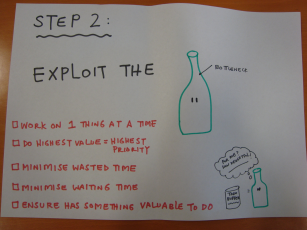 STEP 2:
BOTTLENECK
EXPLOIT THE
☐ WORK ON 1 THING AT A TIME
☐ DO HIGHEST VALUE = HIGHEST
PRIORITY
☐ MINIMISE WASTED TIME
☐ MINIMISE WAITING TIME
☐ ENSURE HAS SOMETHING VALUABLE TO DO